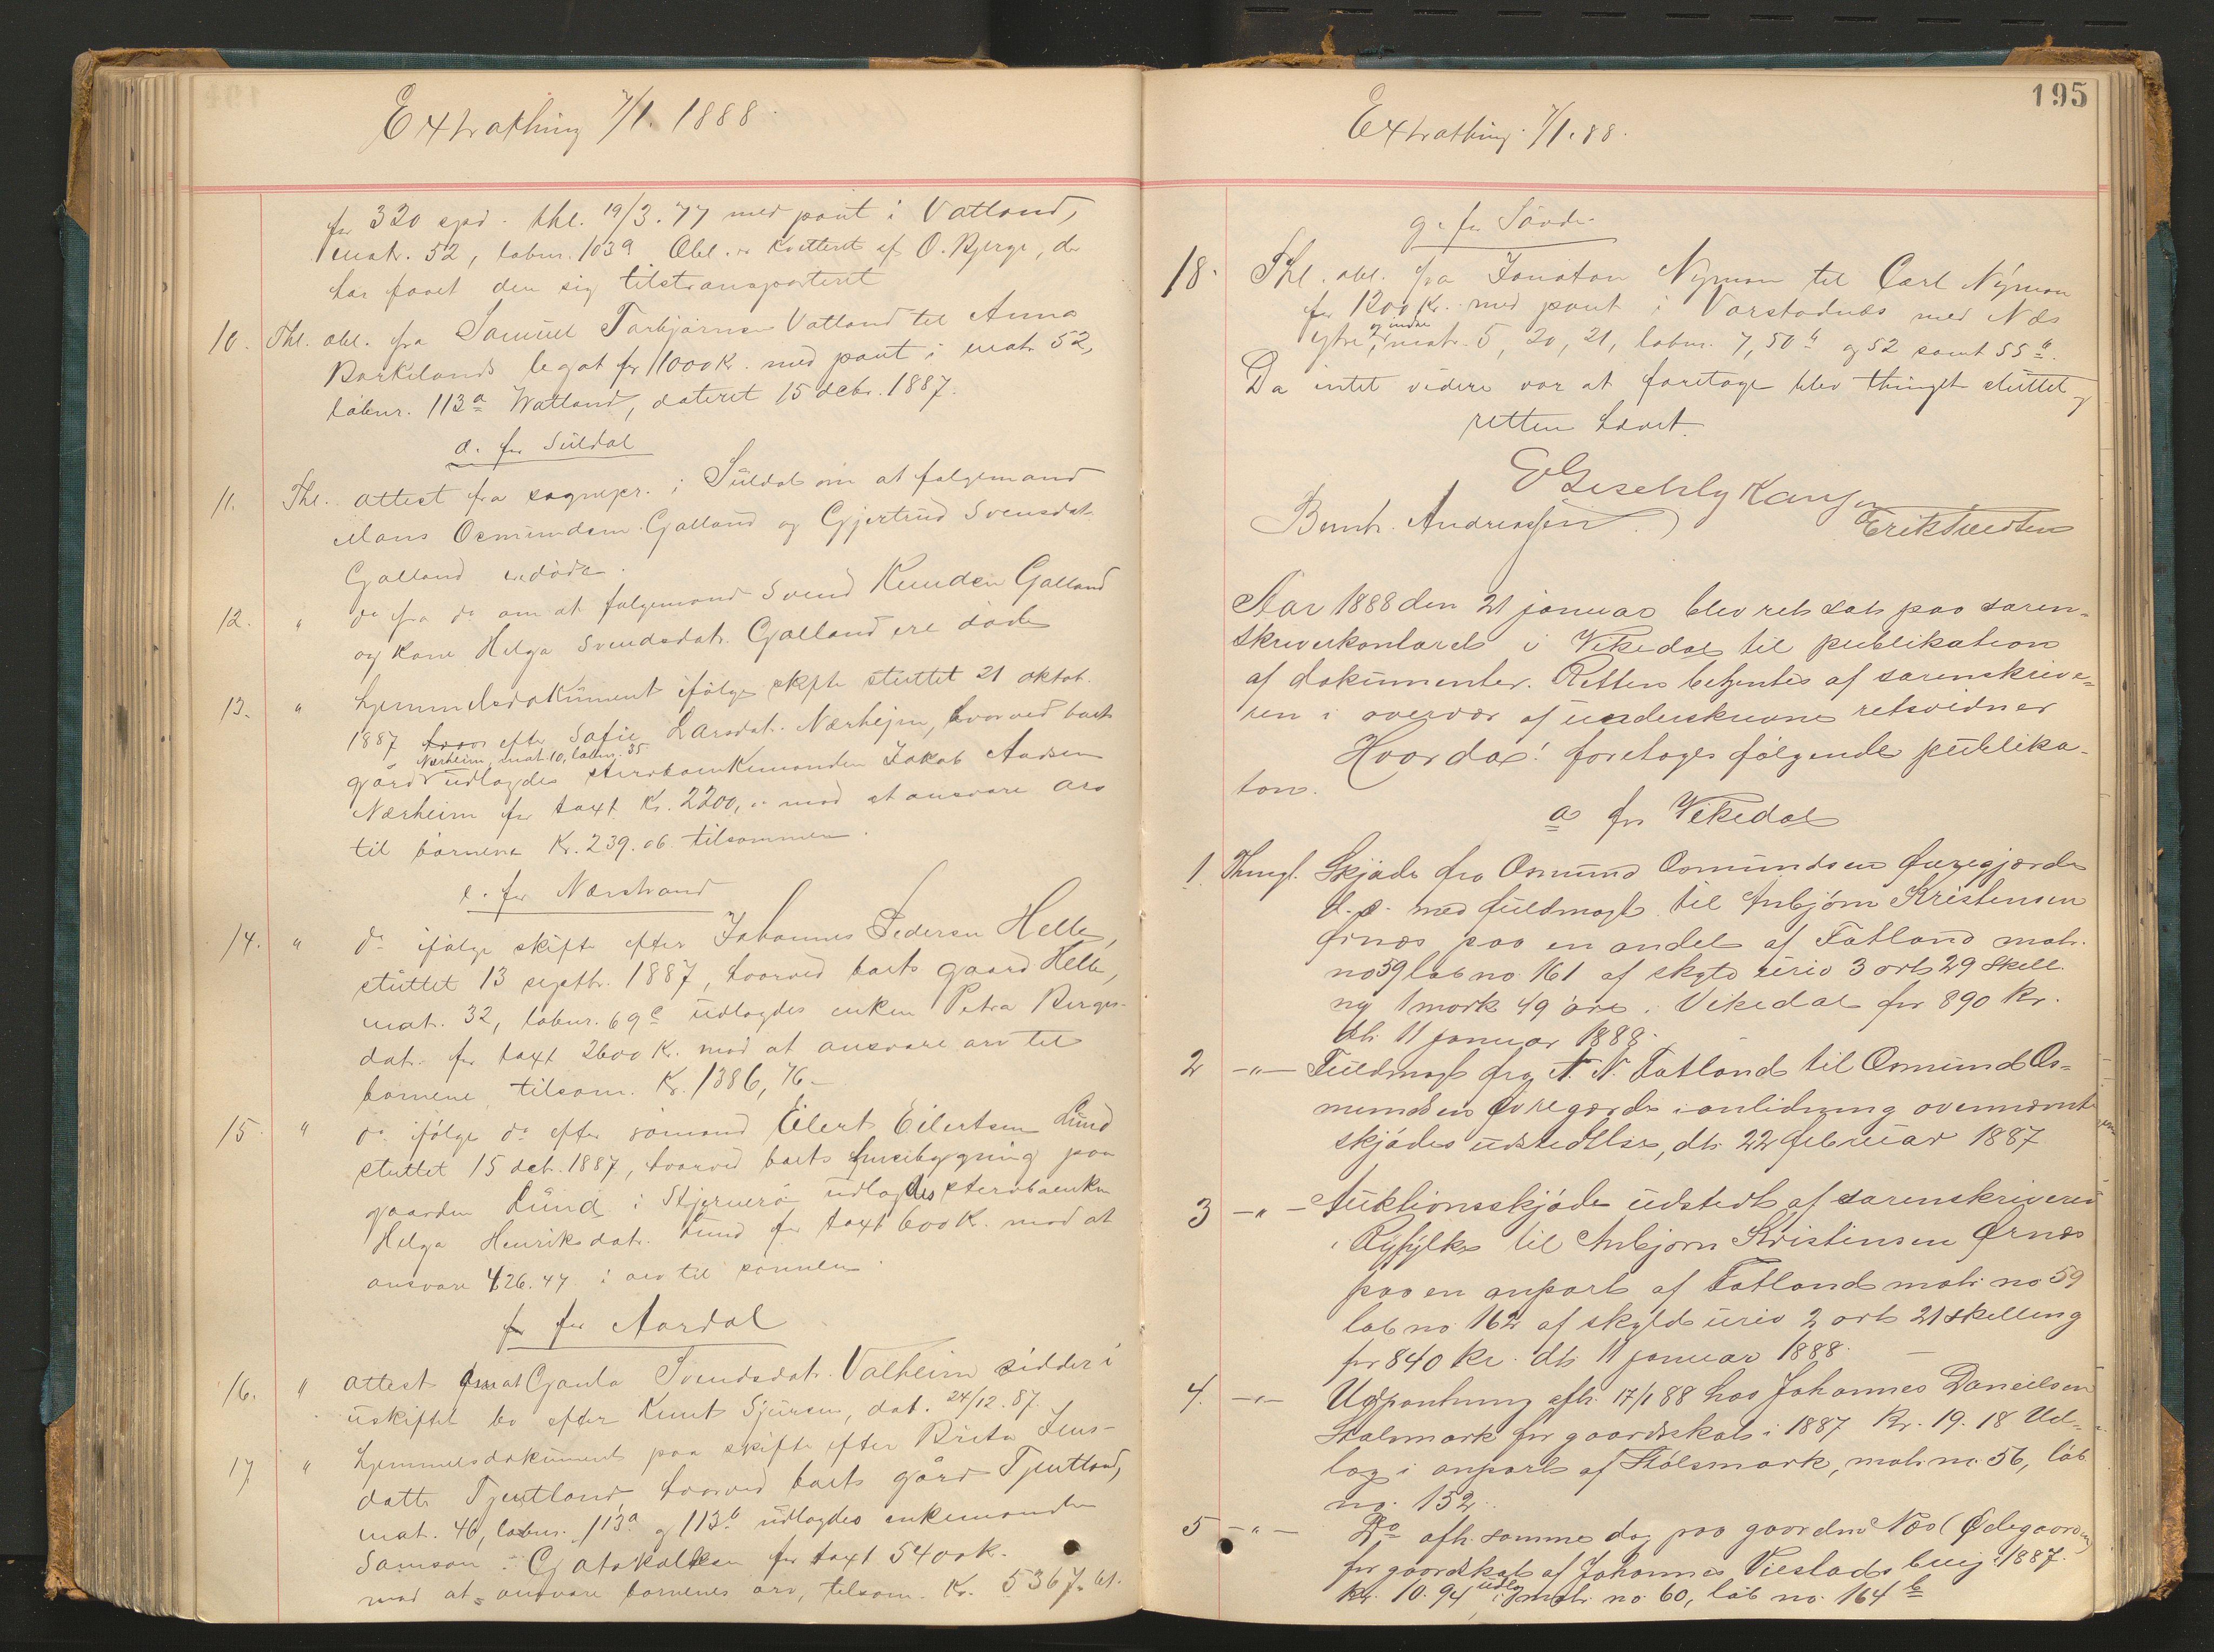 Extrathing 7/1. 1888.
for 320 spd. thl. 19/3. 77 med pant i Vatland,
matr. 52, løbnr. 103a Obl. er kvitteret af O. Bjerge, der
har faaet den sig tilstransporteret
10. Thl. obl. fra Samuel Torbjørnsen Vatland til Anna
Barkelands legat for 1000 Kr. med pant i matr. 52,
løbenr. 113a Watland, dateret 15 decbr. 1887.
d. for Suldal
11. Thl. attest fra sognepr. i Suldal om at følgemand
Mons Osmundsen Galland og Gjertrud Svensdat.
Galland ere døde.
12. " do fra do om at følgemand Svend Knudsen Galland
og Kone Helga Svendsdatr. Galland ere døde
13. " Hjemmelsdokument ifølge skifte sluttet 21 oktob.
1887 efter Sofie Larsdat. Nærheim, hvorved boets
Nærheim, mat. 10, løbnr. 35
gård udlagdes sterboenkemanden Jakob Aadsen
Nærheim for taxt Kr. 2200,- mod at ansvare arv
til børnene Kr. 239.06 tilsammen.
e. for Nærstrand
14. " do ifølge skifte efter Johannes Pedersen Helle,
sluttet 13 septbr. 1887, hvorved boets gaard Helle,
mat. 32, løbnr. 69c udlagdes enken Petra Berges-
datr. for taxt 2600 Kr. mod at ansvare arv til
børnene, tilsam. Kr. 1386,76
15. " do ifølge do efter sømand Eilert Eilertsen Lund
sluttet 15 dcb. 1887, hvorved boets husebygning paa
gaarden Lund i Stjernerø udlagdes sterboenken
Helga Henriksdatr. Lund for taxt 600 K. mod at
ansvare 426.47 i arv til sønnen.
f for Aardal
16. " attest om at Gaula Svendsdatr. Valheim sidder i
uskiftet bo efter Knut Sjursen, dat. 24/12. 87.
17 " Hjemmelsdokument paa skifte efter Brita Jens-
datter Tjentland hvorved boets gård Tjentland,
mat. 46, løbnr. 113a og 113b udlagdes enkemanden
Samson for taxt 5400 K.
mod at ansvare børnenes arv, tilsam. Kr. 5367.61.
195
Extrathing 7/1. 88.
g. for Søvde.
18. Thl. obl. fra Jonatan Nyman til Carl Nyman
for 1200 Kr. med pant i Vorstadnæs med Næs
og indre
ytre, matr. 5, 20, 21, løbnr. 7, 50b og 52 samt 55a.
Da intet videre var at foretage blev thinget sluttet og
retten hævet.
Bernh. Andreassen
Erik Tveden
Aar 1888 den 21 januar blev ret sat paa soren-
skriverkontoret i Vikedal til publikation
af dokumenter. Retten betjentes af sorenskrive-
ren i overvær af underskrevne retsvidner
Hvorda! foretoges følgende publika-
ton.
a for Vikedal
1. Thingl. Skjøde fra Osmund Osmundsen Øvregjærde
e.s. med fuldmagt til Anbjørn Kristensen
Ørnæs paa en andel af Fatland matr.
no 59 løb no. 161 af skyld urev 3 ort 29 skill.
ny 1 mark 49 øre i Vikedal for 890 kr.
dt. 11 januar 1888.
2 -"- Fuldmagt fra N. N. Fatland til Osmund Os-
mundsen Øvregærde i anlidning ovennævnte
skjødes udstedelse, dt. 22 februar 1887
3 -"- Auktionsskjøde udstedt af sorenskriveren
i Ryfylke til Anbjørn Kristensen Ørnæs
paa en anpart af Fatland matr. no 59
løb no 162 af skyld urev 2 ort 21 skilling
for 840 kr. dt. 11 januar 1888.
4. -"- Udpantning afh. 17/1 88 hos Johannes Daneilsen
Stølsmark for gaardskat i 1887 Kr. 19.18 Ud-
læg i anpart af Stølsmark, matr. no. 56, løb
no. 152.
5 -"- Do afh. samme dag paa gaarden Næs (Ødegaarden)
for gaardskat af Johannes Viestads brug i 1887.
udlæg
kr. 10.94 i matr. no 60, løb no. 164b